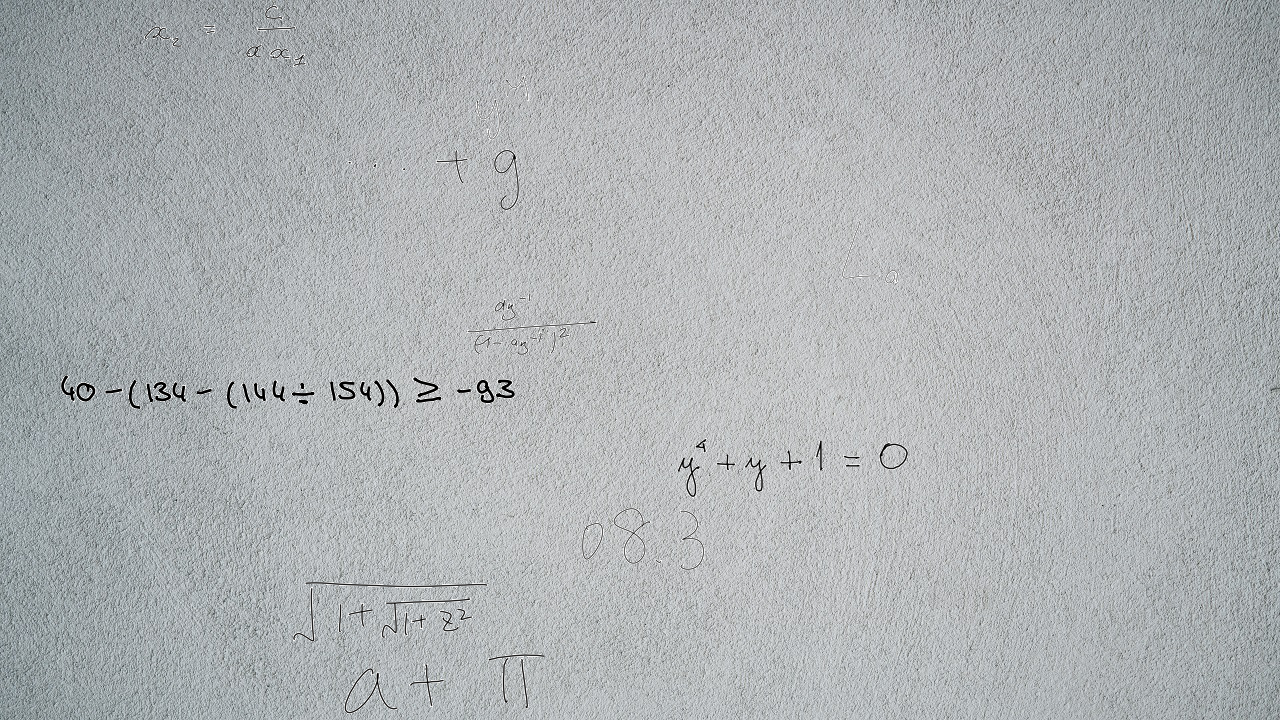 x₂ = G / a x₁
yⁿ
. . . + g
ay⁻¹ / (1 - ay⁻¹)²
40 - (134 - (144 ÷ 154)) ≥ -93
y⁴ + y + 1 = 0
08.3
√(1 + √(1 + z²))
a + π